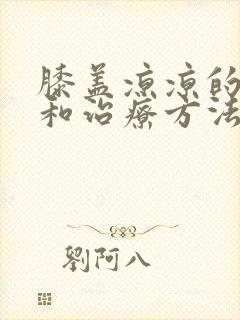 膝盖凉凉的
和治疗方法
劉阿八